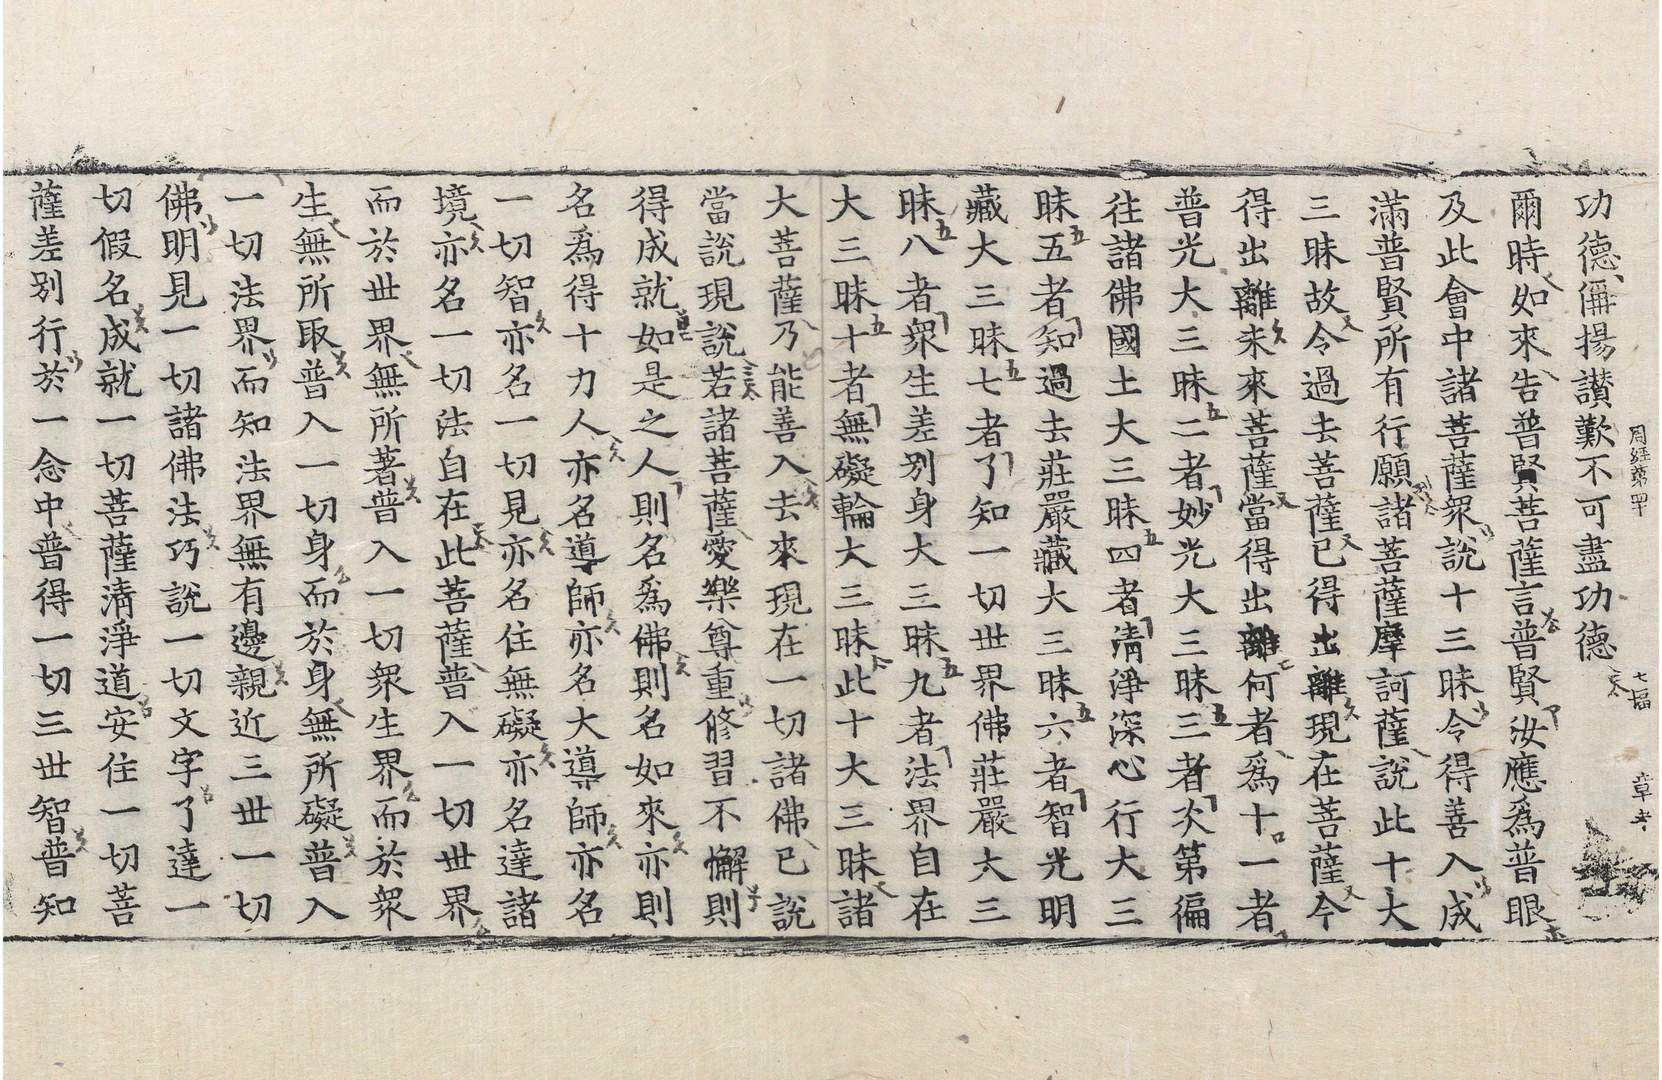 功德偁揚讃歎不可盡功德
周經第四十
七幅
章考
爾時如來告普賢菩薩言普賢汝應爲普眼
及此會中諸菩薩衆說十三昧令得善入成
滿普賢所有行願諸菩薩摩訶薩說此十大
三昧故令過去菩薩已得出離現在菩薩今
得出離未來菩薩當得出離何者爲十一者
普光大三昧二者妙光大三昧三者次第徧
往諸佛國土大三昧四者清淨深心行大三
昧五者知過去莊嚴藏大三昧六者智光明
藏大三昧七者了知一切世界佛莊嚴大三
昧八者衆生差別身大三昧九者法界自在
大三昧十者無礙輪大三昧此十大三昧諸
大菩薩乃能善入去來現在一切諸佛已說
當說現說若諸菩薩愛樂尊重修習不懈則
得成就如是之人則名爲佛則名如來亦則
名爲得十力人亦名導師亦名大導師亦名
一切智亦名一切見亦名住無礙亦名達諸
境亦名一切法自在此菩薩普入一切世界
而於世界無所著普入一切衆生界而於衆
生無所取普入一切身而於身無所礙普入
一切法界而知法界無有邊親近三世一切
佛明見一切諸佛法巧說一切文字了達一
切假名成就一切菩薩清淨道安住一切菩
薩差別行於一念中普得一切三世智普知